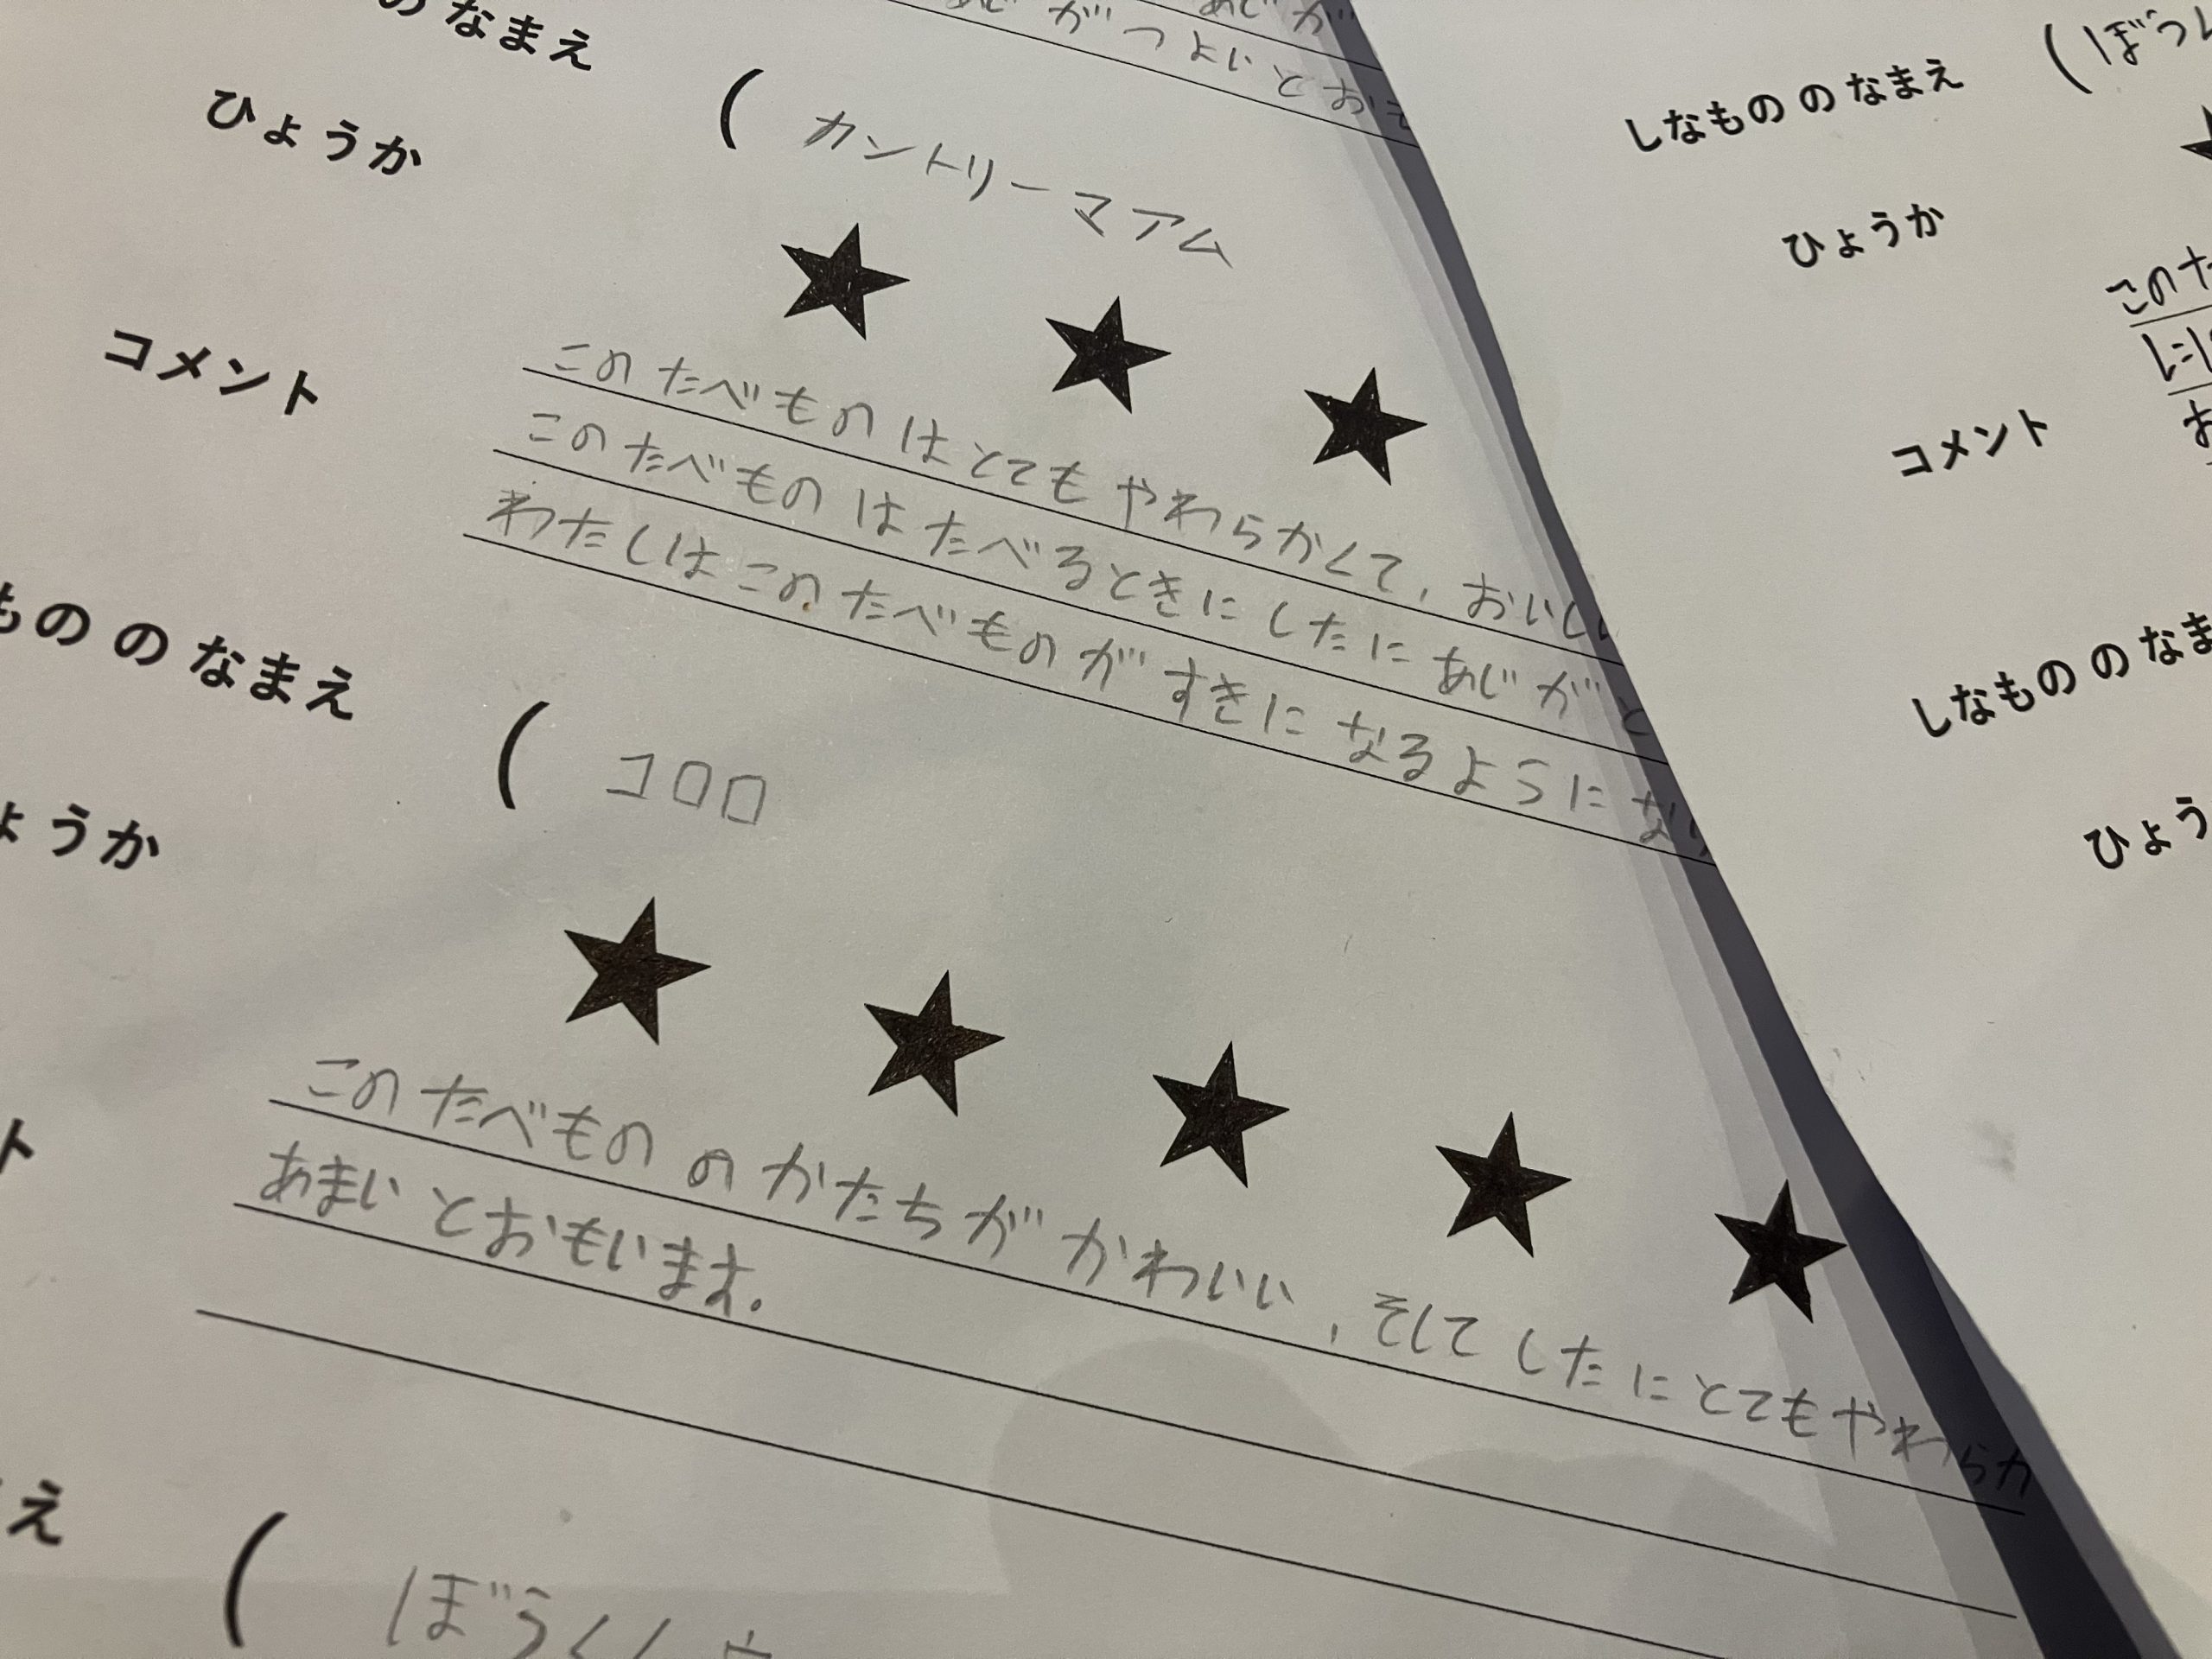 あじがつよいとおも
のなまえ
(カントリーマアム
ひょうか
★★★
コメント
このたべものはとてもやわらかくて、おいし
このたべものはたべるときにしたにあじがと
わたしはこのたべものがすきになるようにな
もののなまえ
(コロロ
ょうか
★★★★★
ト
このたべもののかたちがかわいい、そしてしたにとてもやわらか
あまいとおもいます。
え
(
しなもののなまえ
(ぼうし
ひょうか
コメント
このた
しなもののなま
ひょう